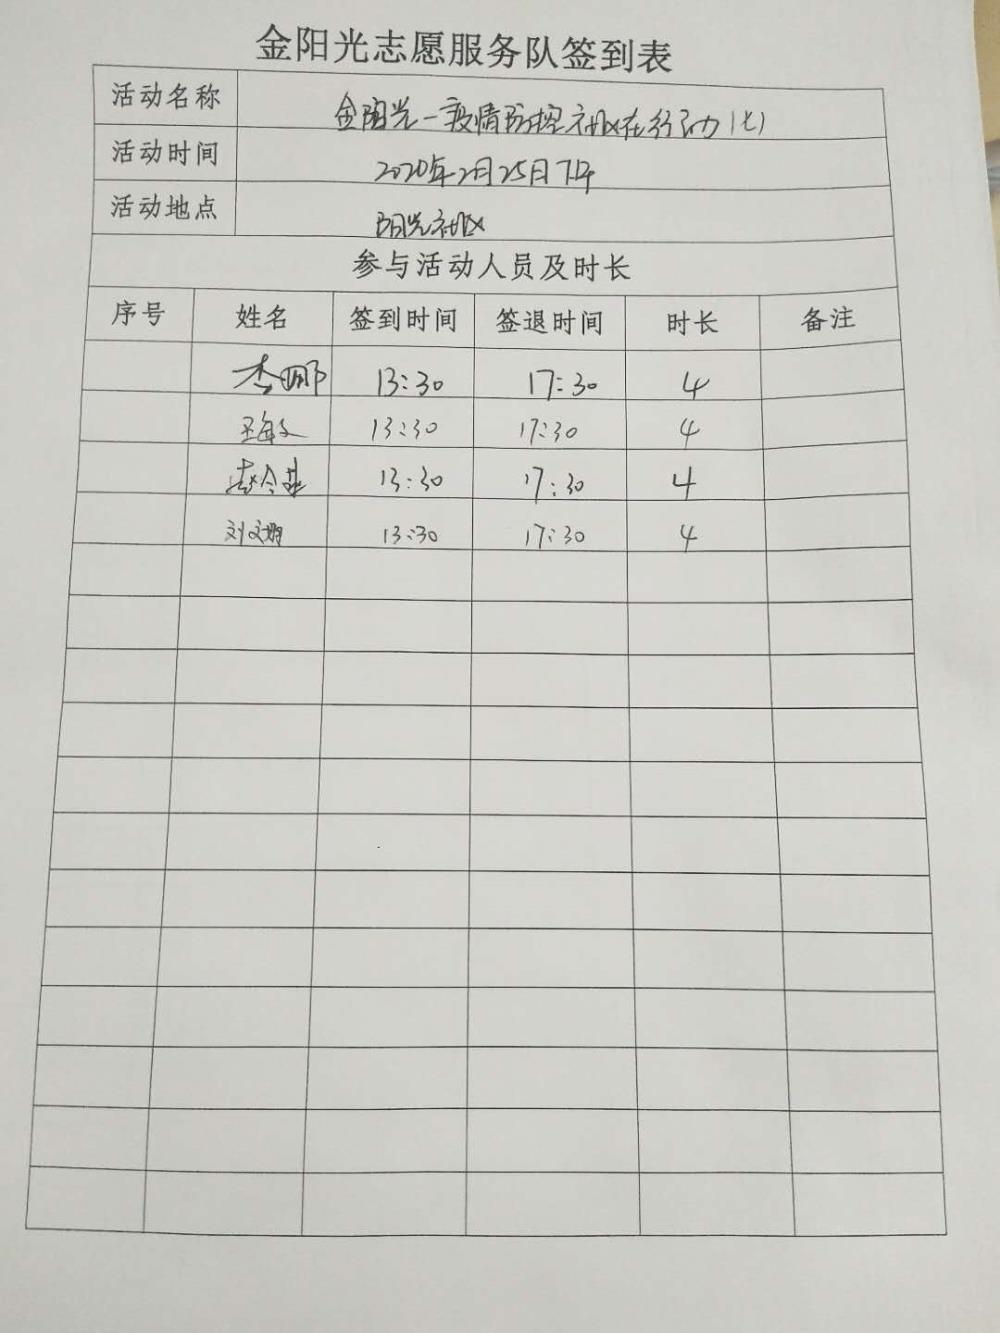 金阳光志愿服务队签到表
活动名称 金阳光一疫情防控社区在行动(七)
活动时间 2020年2月25日下午
活动地点 阳光社区
参与活动人员及时长
序号 姓名 签到时间 签退时间 时长 备注
李娜 13:30 17:30 4
王海文 13:30 17:30 4
13:30 17:30 4
刘文娟 13:30 17:30 4